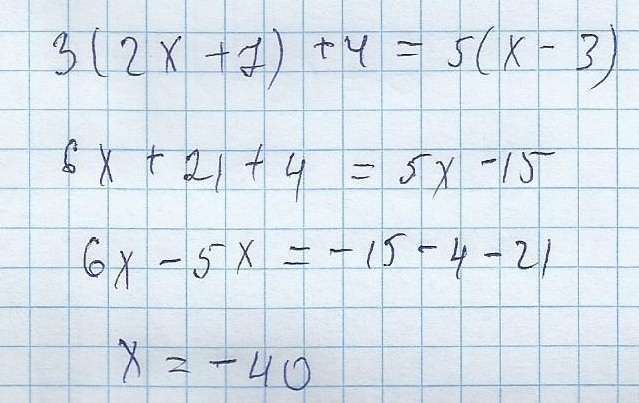 3(2x+7)+4=5(x-3)
6x+21+4=5x-15
6x-5x=-15-4-21
x=-40